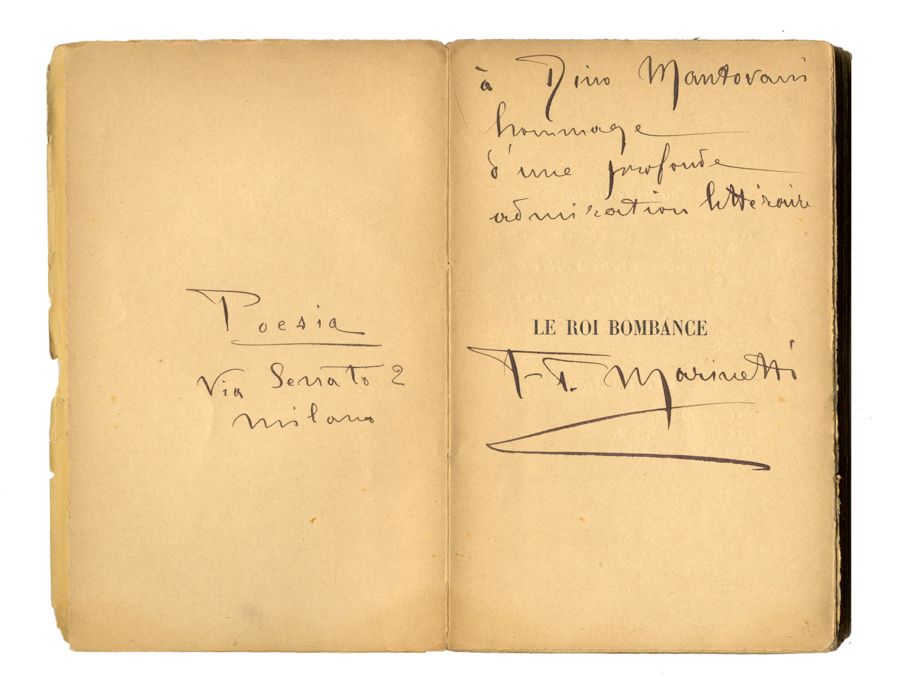 Poesia
Via Senato 2
Milano
à Dino Mantovani
hommage
d'une profonde
admiration littéraire
LE ROI BOMBANCE
F. T. Marinetti